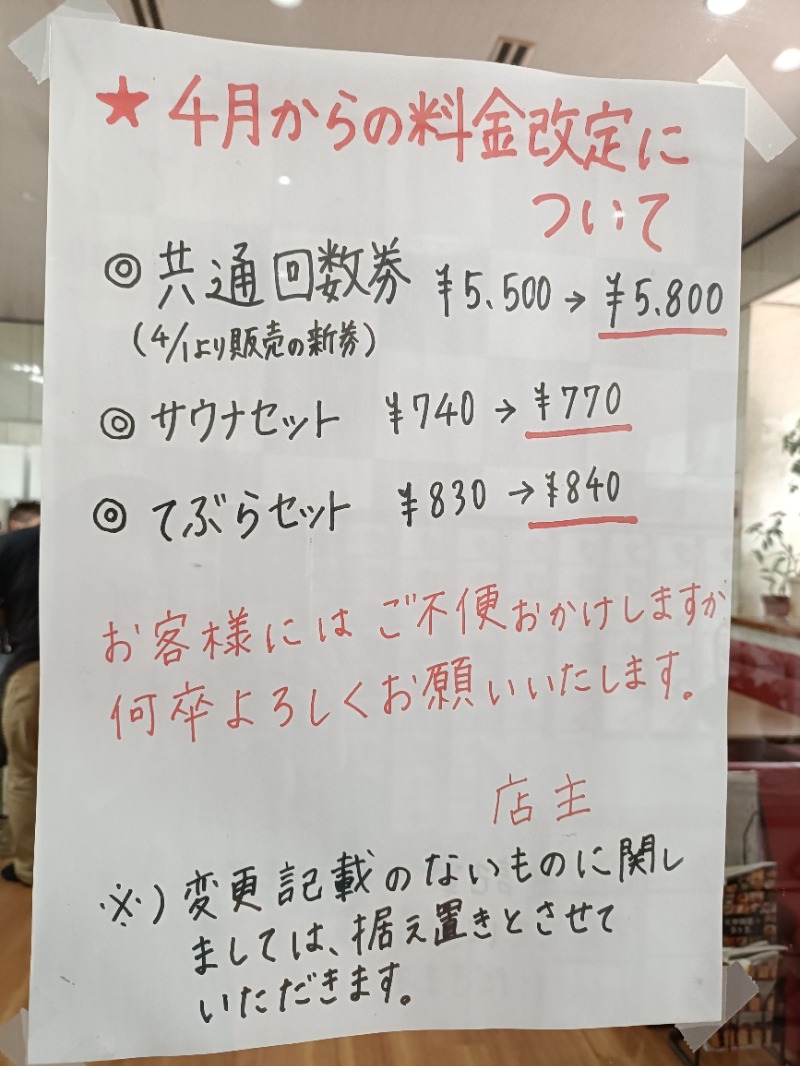 ★4月からの料金改定に
ついて
◎共通回数券 ¥5.500→¥5.800
(4/1より販売の新券)
◎サウナセット ¥740→¥770
◎てぶらセット ¥830→¥840
お客様にはご不便おかけしますが
何卒よろしくお願いいたします。
店主
※)変更記載のないものに関し
ましては、据え置きとさせて
いただきます。